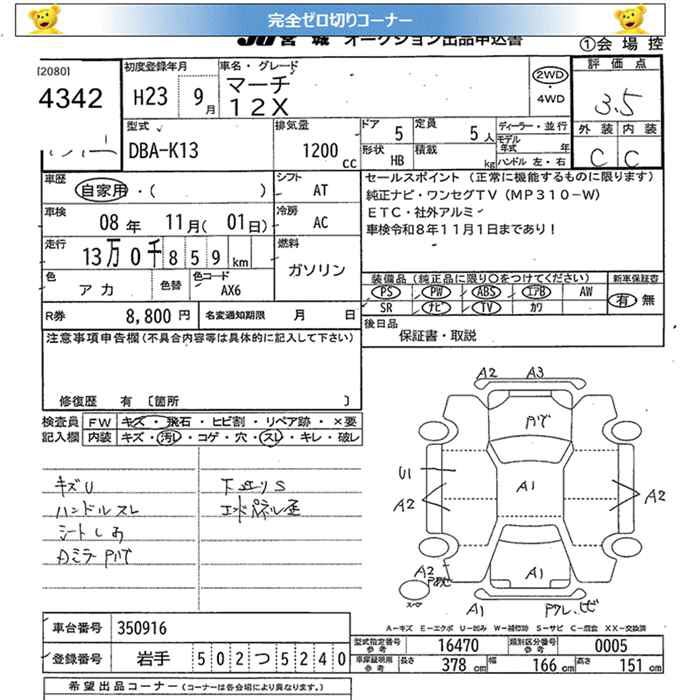 完全ゼロ切りコーナー
JU 宮城 オークション出品申込書
①会場控
[2080]
4342
初度登録年月
H23 9月
車名・グレード
マーチ
12X
2WD
・4WD
評価点
3.5
外装 内装
C C
型式
DBA-K13
排気量
1200cc
ドア 5
定員 5人
形状 HB
積載 kg
ディーラー・並行
モデル年式 年
ハンドル 左・右
車歴
自家用・( )
シフト
AT
車検
08年 11月(01日)
冷房
AC
走行
13万0千859km
燃料
ガソリン
色
アカ
色替
色コード
AX6
R券 8,800円
名変通知期限 月 日
セールスポイント(正常に機能するものに限ります)
純正ナビ・ワンセグTV(MP310-W)
ETC・社外アルミ
車検令和8年11月1日まであり!
装備品(純正品に限り○をつけてください)
新車保証書
PS PW ABS エアB AW
SR ナビ TV カワ
有 無
後日品
保証書・取説
注意事項申告欄(不具合内容等は具体的に記入して下さい)
修復歴 有 〔箇所 〕
検査員記入欄
FW キズ・飛石・ヒビ割・リペア跡・×要
内装 キズ・汚レ・コゲ・穴・スレ・キレ・破レ
キズU
ハンドルスレ
下廻りS
エンドパネル歪
A2 A3
U1
A2
A1
A2
A2
A1
スペア
A1
A-キズ E-エクボ U-凹み W-補修跡 S-サビ C-腐食 XX-交換済
車台番号 350916
登録番号 岩手 502つ5240
型式指定番号 参考 16470
類別区分番号 参考 0005
車庫証明用 参考 長さ 378cm 幅 166cm 高さ 151cm
希望出品コーナー(コーナーは各会場により異なります。)